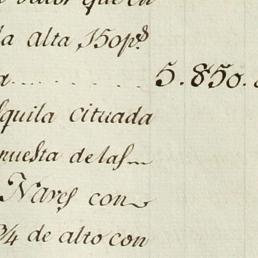 valor que en
la alta, 150 p.s
a.......... 5.850.
squila cituada
nuesta de las
Nares con
3/4 de alto con